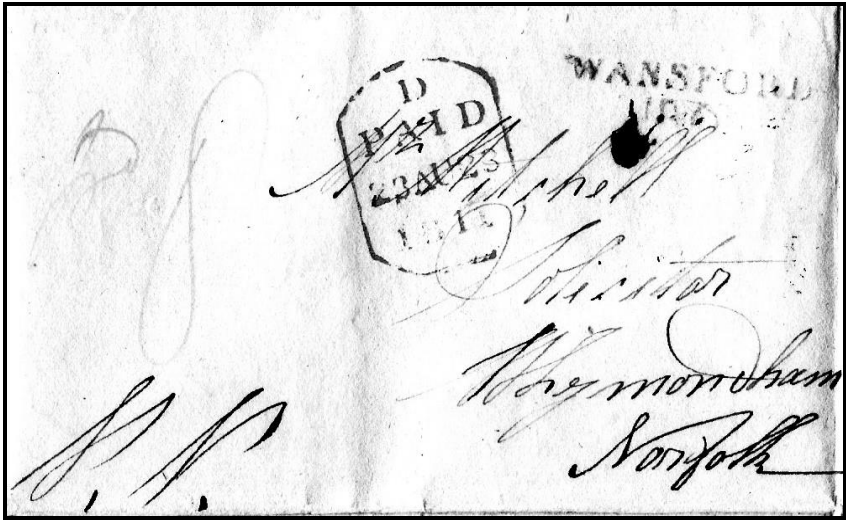 WANSFORD
D
PAID
23AU23
1811
Mr Mitchell
Solicitor
Whymondham
Norfolk
P. P.